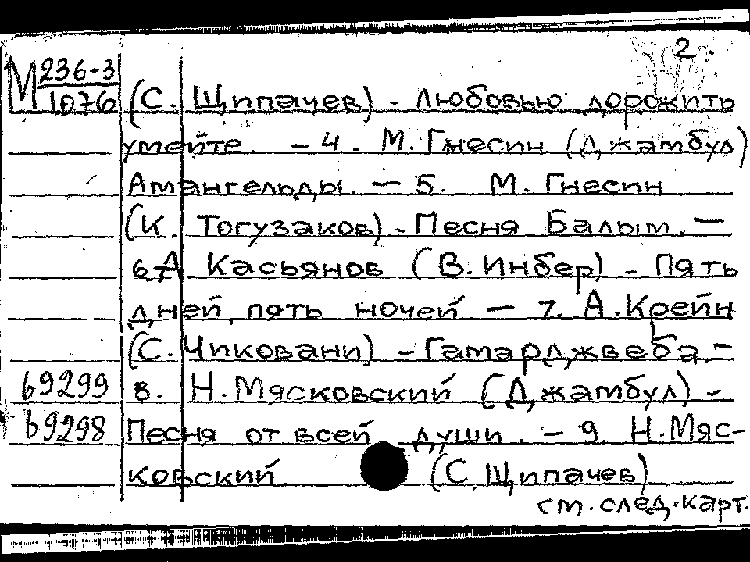 2.
М 236-3
1076
(С. Щипачев) - Любовью дорожить
умейте. - 4. М. Гнесин (Джамбул)
Амангельды. - 5. М. Гнесин
(К. Тогузаков) - Песня Балым. -
6. А. Касьянов (В. Инбер) - Пять
дней, пять ночей - 7. А. Крейн
(С. Чиковани) - Гамарджвеба. -
69299 8. Н. Мясковский (Джамбул) -
69298 Песня от всей души. - 9. Н. Мяс-
ковский (С. Щипачев)
см. след. карт.